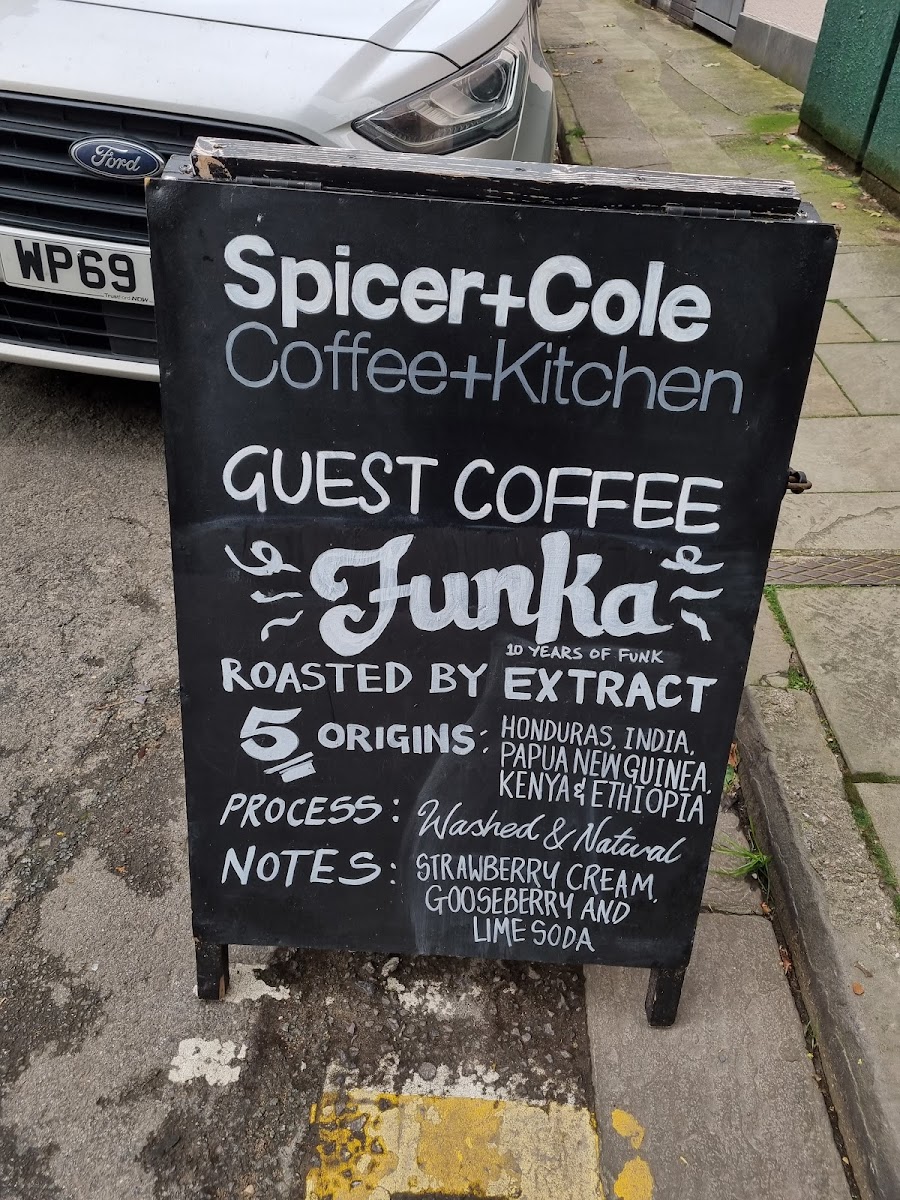 Ford
WP69
Spicer+Cole
Coffee+Kitchen
GUEST COFFEE
Funka
10 YEARS OF FUNK
ROASTED BY EXTRACT
5 ORIGINS: HONDURAS, INDIA,
PAPUA NEW GUINEA,
KENYA & ETHIOPIA
PROCESS: Washed & Natural
NOTES: STRAWBERRY CREAM,
GOOSEBERRY AND
LIME SODA